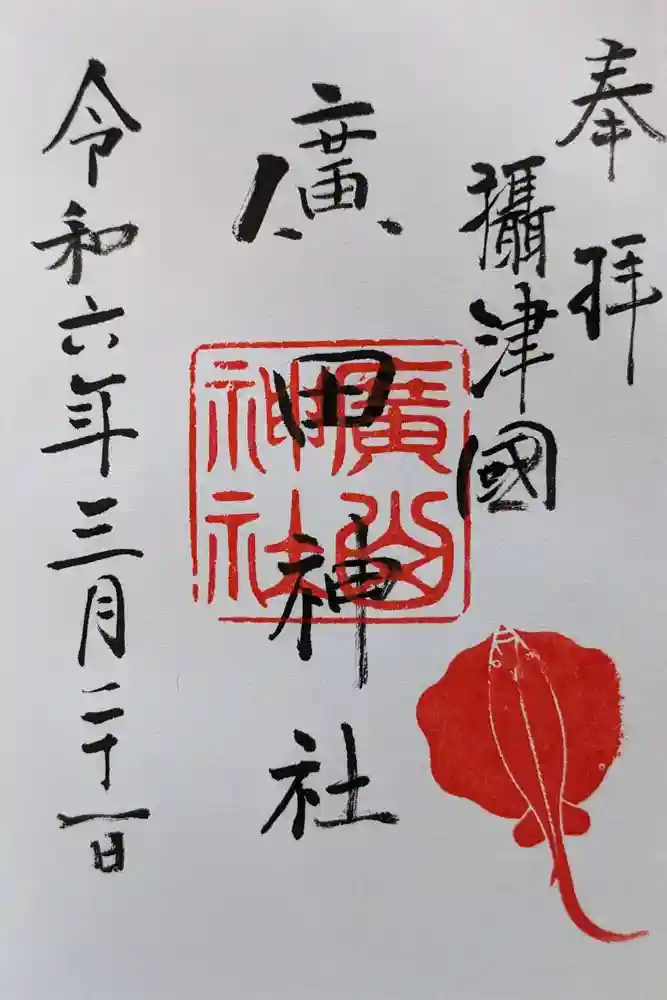 奉拝
攝津國
廣田神社
令和六年三月二十一日
廣
神社